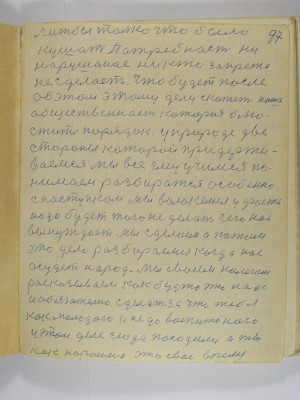 97
лижбы толко что было
кушат Патребност ни
нарушаное ни кто запрета
не сделает. Что будет после
об этом этому делу скажет наша
общественност которая блю-
стит порядок. у природе две
стороны которой придержи-
ваемся мы все ему учимся по-
нимаем разбиратся особенно
с паступком мы
надо будет того не делат чего нас
вынуждает мы сделаем а патом
это дело разбираемся когда нас
осудет народ. Мы своим
как будто это надо
и обязателно сделат за что тебя
как молодого и не до воспитаного
у этом деле сюда посодили а ты
как хорошего это свае врему